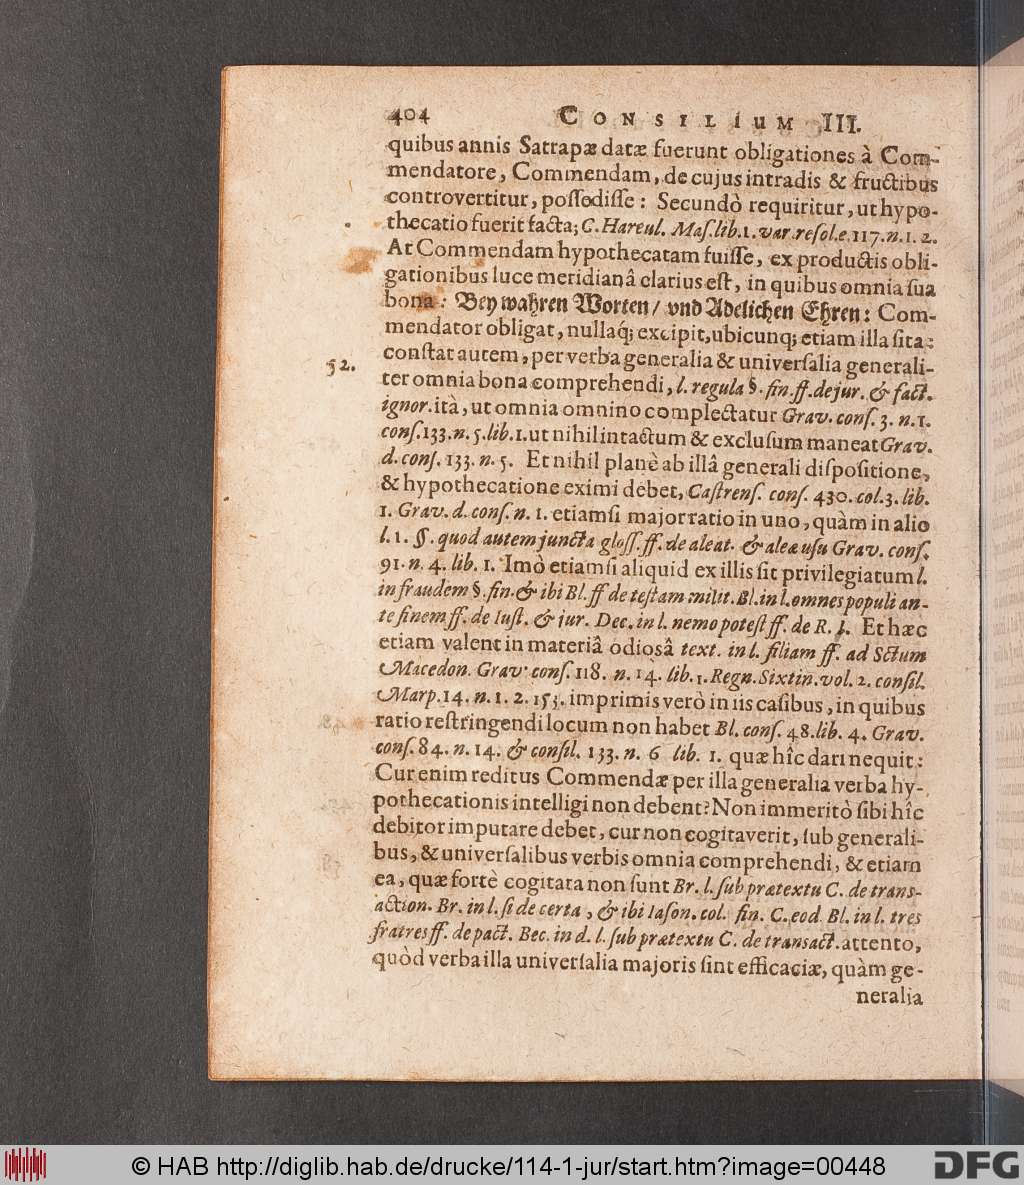 404 CONSILIUM III.
quibus annis Satrapæ datæ fuerunt obligationes à Com-
mendatore, Commendam, de cujus intradis & fructibus
controvertitur, poſſediſſe: Secundò requiritur, ut hypo-
thecatio fuerit facta; C. Hareul. Maſ. lib. 1. var. reſol. e. 117. n. 1. 2.
At Commendam hypothecatam fuiſſe, ex productis obli-
gationibus luce meridianâ clarius eſt, in quibus omnia ſua
bona: Bey wahren Worten/ vnd Adelichen Ehren: Com-
mendator obligat, nullaq́; excipit, ubicunq; etiam illa ſita:
52. conſtat autem, per verba generalia & univerſalia generali-
ter omnia bona comprehendi, l. regula §. fin. ff. de jur. & fact.
ignor. ità, ut omnia omnino complectatur Grav. conſ. 3. n. 1.
conſ. 133. n. 5. lib. 1. ut nihil intactum & excluſum maneat Grav.
d. conſ. 133. n. 5. Et nihil planè ab illâ generali diſpoſitione,
& hypothecatione eximi debet, Caſtrenſ. conſ. 430. col. 3. lib.
1. Grav. d. conſ. n. 1. etiamſi major ratio in uno, quàm in alio
l. 1. §. quod autem juncta gloſſ. ff. de aleat. & aleæ uſu Grav. conſ.
91. n. 4. lib. 1. Imò etiamſi aliquid ex illis ſit privilegiatum l.
in fraudem §. fin. & ibi Bl. ff de teſtam. milit. Bl. in l. omnes populi an-
te finem ff. de Iuſt. & jur. Dec. in l. nemo poteſt ff. de R. I. Et hæc
etiam valent in materiâ odiosâ text. in l. filiam ff. ad Sctum
Macedon. Grav. conſ. 118. n. 14. lib. 1. Regn. Sixtin. vol. 2. conſil.
Marp. 14. n. 1. 2. 153. imprimis verò in iis caſibus, in quibus
ratio reſtringendi locum non habet Bl. conſ. 48. lib. 4. Grav.
conſ. 84. n. 14. & conſil. 133. n. 6 lib. 1. quæ hîc dari nequit:
Cur enim reditus Commendæ per illa generalia verba hy-
pothecationis intelligi non debent? Non immeritò ſibi hîc
debitor imputare debet, cur non cogitaverit, ſub generali-
bus, & univerſalibus verbis omnia comprehendi, & etiam
ea, quæ fortè cogitata non ſunt Br. l. ſub prætextu C. de trans-
action. Br. in l. ſi de certa, & ibi Iaſon. col. fin. C. eod. Bl. in l. tres
fratres ff. de pact. Bec. in d. l. ſub prætextu C. de transact. attento,
quòd verba illa univerſalia majoris ſint efficaciæ, quàm ge-
neralia
© HAB http://diglib.hab.de/drucke/114-1-jur/start.htm?image=00448
DFG